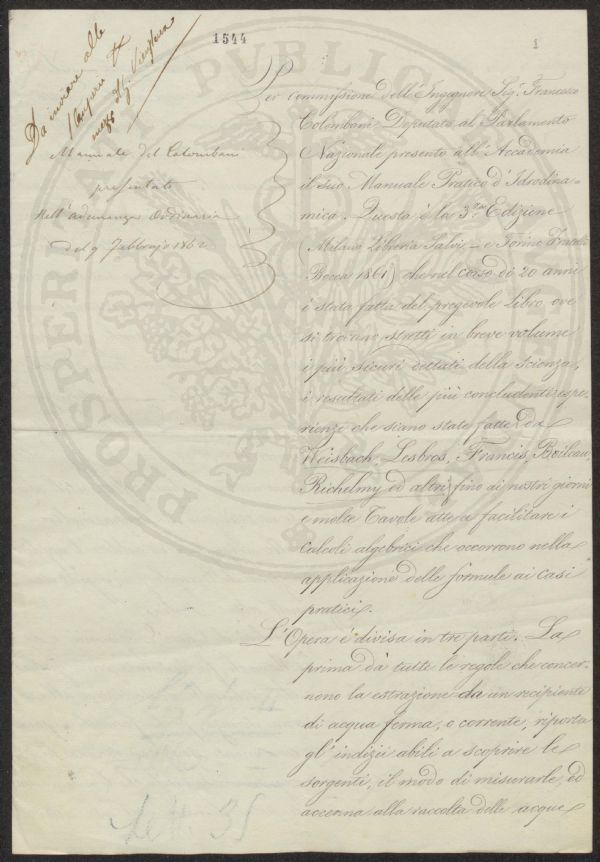 1544
1
Da inviare alle
Manuale del Colombani
presentato
Nell'adunanza Ordinaria
del 9 Febbrajo 1862
Per commissione dell'Ingegnere Sig. Francesco
Colombani Deputato al Parlamento
Nazionale presento all'Accademia
il suo Manuale Pratico d'Idrodina=
mica. Questa è la 3.za Edizione
(Milano Libreria Salvi - e Torino Fratelli
Bocca 1861) che nel corso di 20 anni
è stata fatta del pregevole Libro ove
si trovano stretti in breve volume
i più sicuri dettati della Scienza,
i resultati delle più concludenti espe-
rienze che siano state fatte da
Weisbach, Lesbros, Francis, Boileau,
Richelmy ed altri fino ai nostri giorni
e molte Tavole atte a facilitare i
calcoli algebrici che occorrono nella
applicazione delle formule ai casi
pratici.
L'Opera è divisa in tre parti. La
prima dà tutte le regole che concer-
nono la estrazione da un recipiente
di acqua ferma, o corrente, riporta
gl'indizii abili a scoprire le
sorgenti, il modo di misurarle, ed
accenna alla raccolta delle acque
PROSPERITATI PUBLICAE